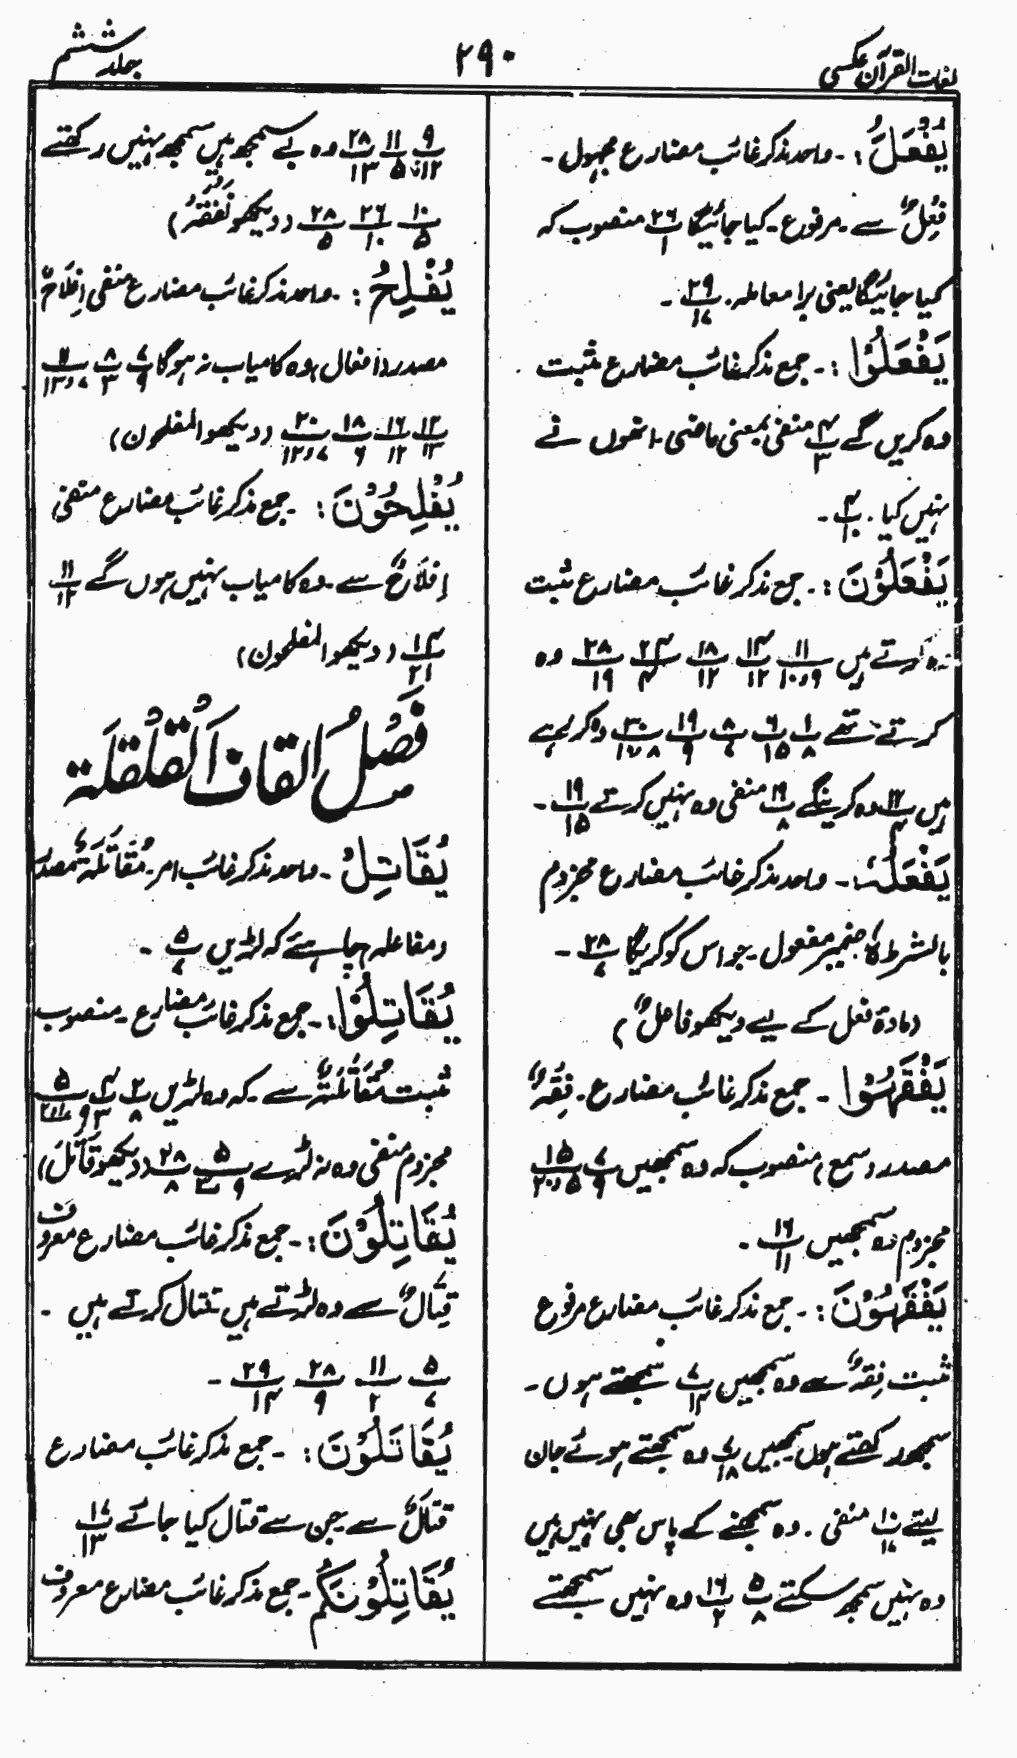 لغات القرآن عکسی
۲۹۰
جلد ششم
یُفْعَلُ :۔ واحد مذکر غائب مضارع مجہول ۔
فِعْلٌ سے ۔ مرفوع ۔ کیا جائیگا ۲۶/۱ منصوب کہ
کیا جائیگا یعنی برا معاملہ ۔ ۲۹/۱۷ ۔
یَفْعَلُوْا :۔ جمع مذکر غائب مضارع مثبت
وہ کریں گے ۴/۳ منفی بمعنی ماضی ۔ انھوں نے
نہیں کیا ۔ ۴/۱۰ ۔
یَفْعَلُوْنَ :۔ جمع مذکر غائب مضارع مثبت
وہ کرتے ہیں ۱۱/۹و۱۰ ۱۴/۱۲ ۱۸/۱۲ ۲۴/۴ ۲۸/۱۹ وہ
کرتے تھے ۱/۸ ۶/۱۵ ۸/۷ ۱۹/۹ ۳۰/۸ و ۱۷ وہ کر رہے
ہیں ۱۲/۴ وہ کرینگے ۱۹/۸ منفی وہ نہیں کرتے ۱۹/۱۵ ۔
یَفْعَلْہُ :۔ واحد مذکر غائب مضارع مجزوم
بالشرط ہٗ ضمیر مفعول ۔ جو اس کو کریگا ۲۸/۷ ۔
(مادۃ فعل کے لیے دیکھو فاعلٌ)
یَفْقَہُوْا ۔ جمع مذکر غائب مضارع ۔ فِقْہٌ
مصدر (سمع) منصوب کہ وہ سمجھیں ۷/۹ ۱۵/۵ و ۲۰
مجزوم وہ سمجھیں ۱۶/۱۱ ۔
یَفْقَہُوْنَ :۔ جمع مذکر غائب مضارع مرفوع
مثبت فِقْہٌ سے وہ سمجھیں ۷/۱۴ سمجھتے ہوں ۔
سمجھ رکھتے ہوں ۔ سمجھیں ۷/۱۸ وہ سمجھتے ہوئے جان
لیتے ۱۰/۱۷ منفی ۔ وہ سمجھنے کے پاس بھی نہیں ہیں
وہ نہیں سمجھ سکتے ۵/۸ ۱۶/۲ وہ نہیں سمجھتے
۹/۱۲ ۱۱/۵ ۲۸/۱۳ وہ بے سمجھ ہیں سمجھ نہیں رکھتے
۱۰/۵ ۲۶/۱۰ ۲۸/۵ (دیکھو نَفْقَہُ)
یُفْلِحُ :۔ واحد مذکر غائب مضارع منفی اِفْلَاحٌ
مصدر (افعال) وہ کامیاب نہ ہوگا ۷/۹ ۸/۳ ۱۱/۷ و ۱۳
۱۲/۱۳ ۱۶/۱۲ ۱۸/۶ ۲۰/۷ و ۱۲ (دیکھو المفلحون)
یُفْلِحُوْنَ :۔ جمع مذکر غائب مضارع منفی
اِفْلَاحٌ سے ۔ وہ کامیاب نہیں ہوں گے ۱۱/۱۲
۱۴/۲۱ (دیکھو المفلحون)
فَصْلُ القاف اَلْقَلْقَلَۃ
یُقَاتِلْ ۔ واحد مذکر غائب امر ۔ مُقَاتَلَۃٌ مصدر
(مفاعلہ) چاہئے کہ لڑیں ۵/۷ ۔
یُقَاتِلُوْا :۔ جمع مذکر غائب مضارع ۔ منصوب
مثبت مُقَاتَلَۃٌ سے ۔ کہ وہ لڑیں ۲/۸ ۴/۹
مجزوم منفی وہ نہ لڑے ۵/۹ ۲۸/۸ (دیکھو قَاتَلَ)
یُقَاتِلُوْنَ :۔ جمع مذکر غائب مضارع معروف
قِتَالٌ سے وہ لڑتے ہیں قتال کرتے ہیں ۔
۵/۷ ۱۱/۲ ۲۸/۹ ۲۹/۱۴ ۔
یُقَاتَلُوْنَ :۔ جمع مذکر غائب مضارع
قتالٌ سے جن سے قتال کیا جائے ۱۷/۱۳
یُقَاتِلُوْنَکُمْ ۔ جمع مذکر غائب مضارع معروف